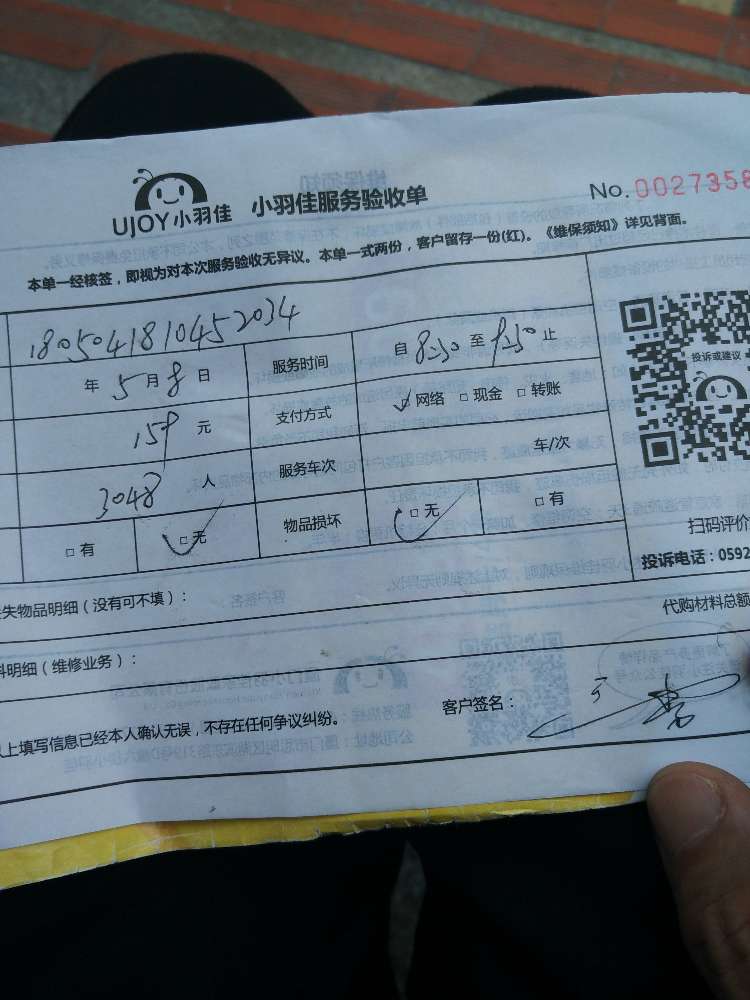 UJOY小羽佳 小羽佳服务验收单 No. 0027358
本单一经核签，即视为对本次服务验收无异议。本单一式两份，客户留存一份(红)。《维保须知》详见背面。
1805041810452034
年 5月8日 服务时间 自 8:30 至 9:30 止
159 元 支付方式 网络 □现金 □转账
投诉或建议
3048 人 服务车次 车/次
□有 □无 物品损坏 □无 □有
扫码评价
投诉电话：0592
失物品明细（没有可不填）：
代购材料总额
料明细（维修业务）：
上填写信息已经本人确认无误，不存在任何争议纠纷。 客户签名：